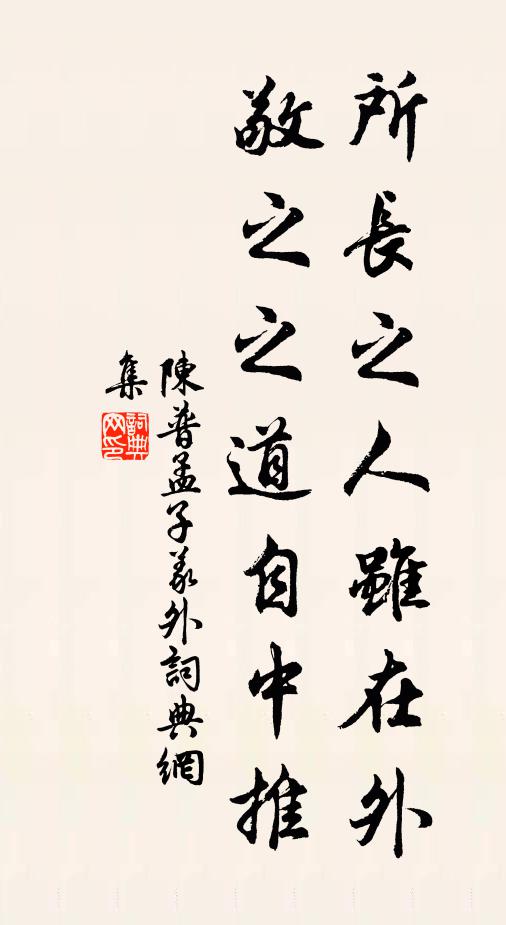 所長之人雖在外
敬之之道自中推
陳普孟子義外詞典網
集
詞典网印